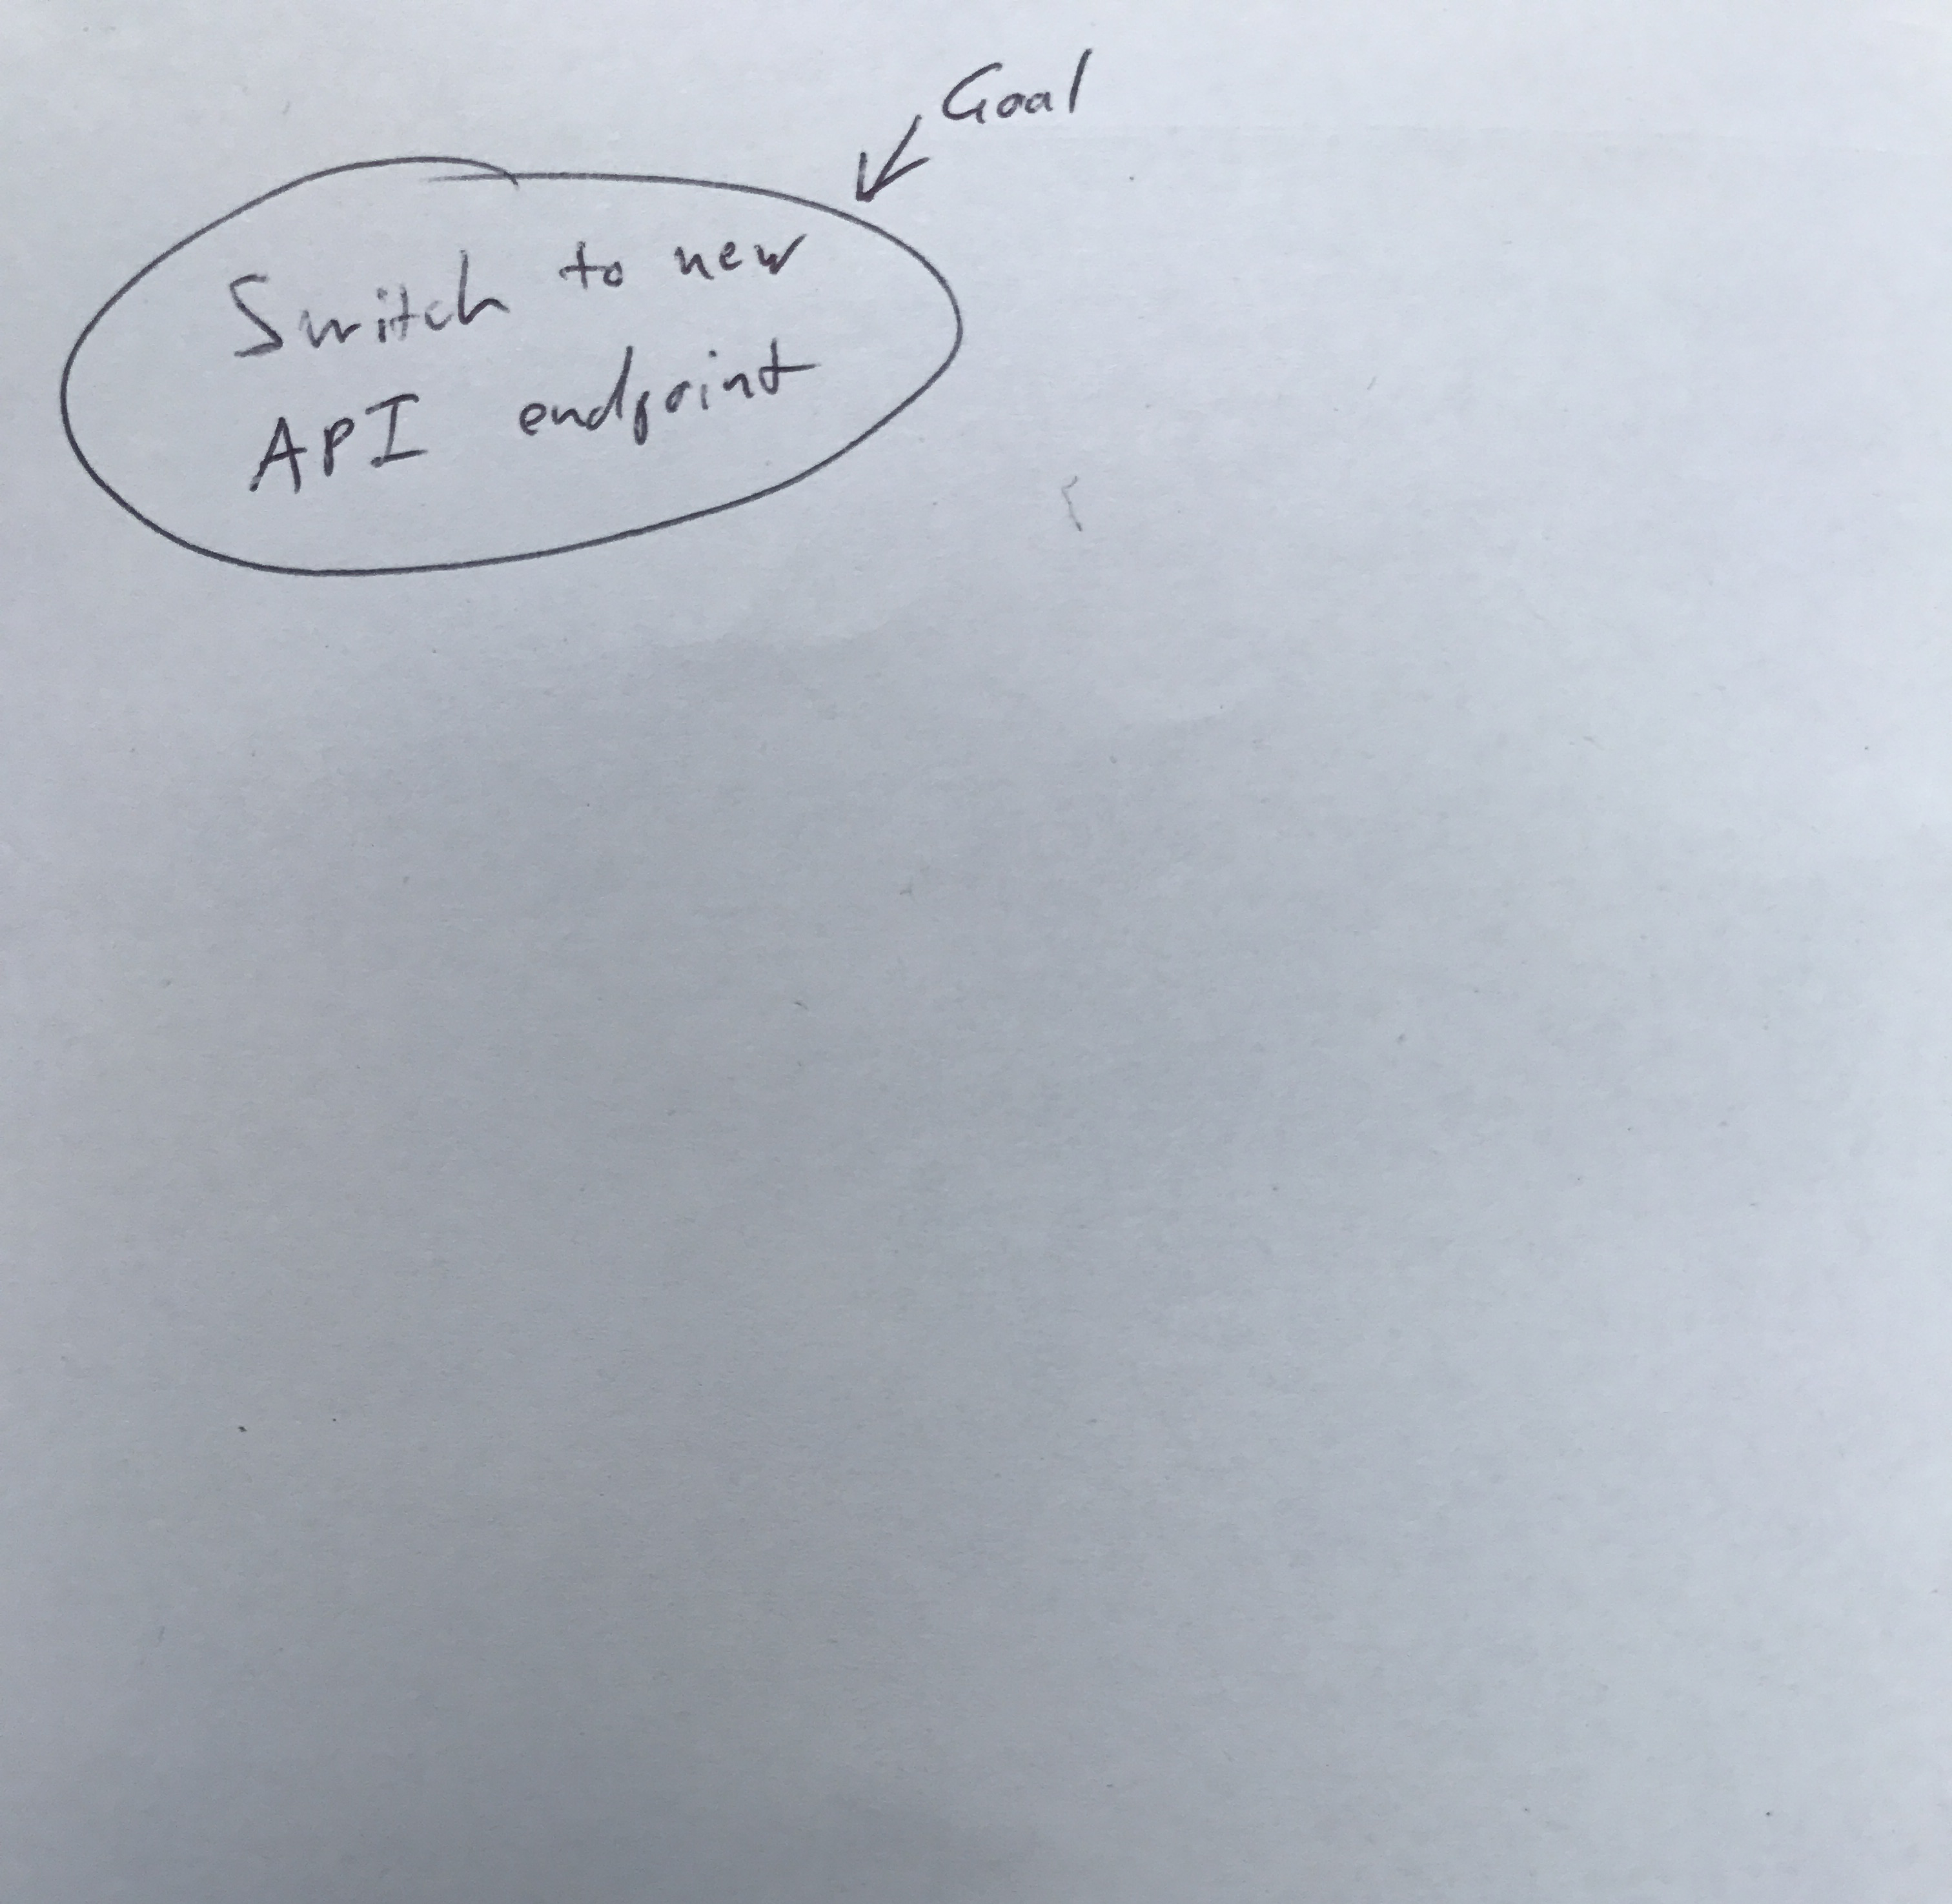 Goal
Switch to new
API endpoint